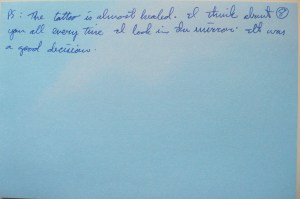 PS: The tattoo is almost healed. I think about
you all every time I look in the mirror. It was
a good decision.